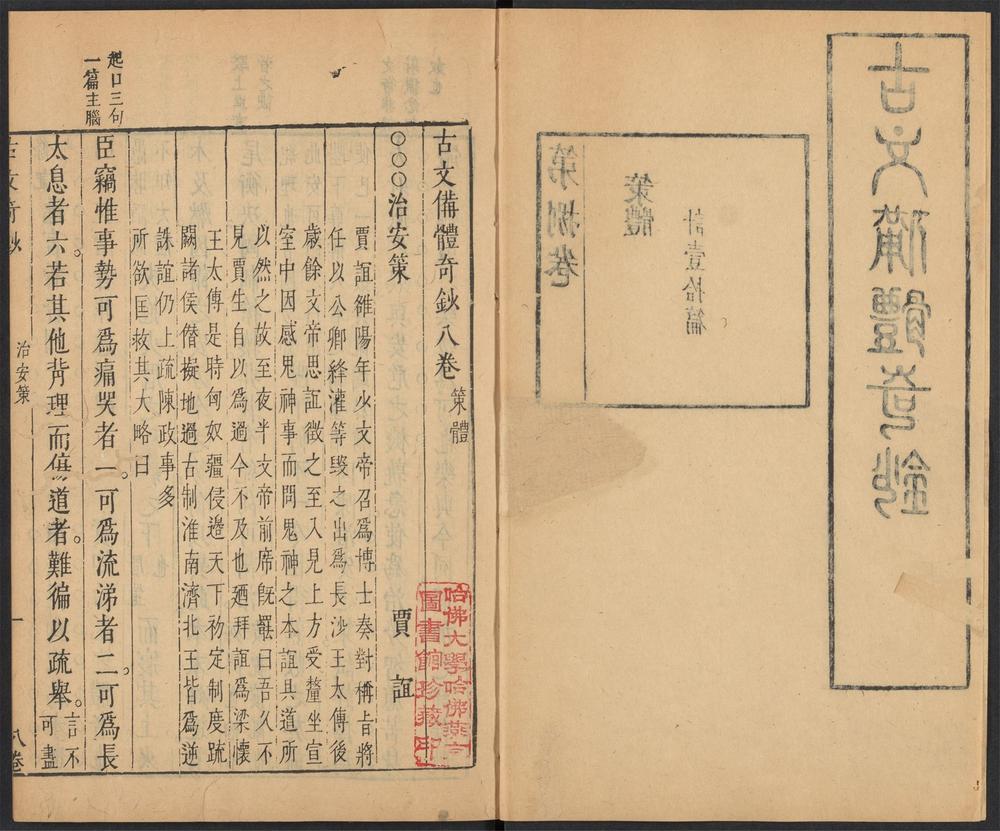 古文備體奇鈔
第捌卷
策體
計壹拾篇
古文備體奇鈔八卷 策體
○○○治安策 賈誼
哈佛大學哈佛燕京
圖書館珍藏印
賈誼雒陽年少文帝召爲博士奏對稱旨將
任以公卿絳灌等毀之出爲長沙王太傅後
歲餘文帝思誼徵之至入見上方受釐坐宣
室中因感鬼神事而問鬼神之本誼具道所
以然之故至夜半文帝前席旣罷曰吾久不
見賈生自以爲過今不及也廼拜誼爲梁懷
王太傅是時匈奴疆侵邊天下初定制度疏
闊諸侯僭擬地過古制淮南濟北王皆爲逆
誅誼仍上疏陳政事多
所欲匡救其大略曰
起口三句
一篇主腦
臣竊惟事勢可爲痛哭者一。可爲流涕者二。可爲長
太息者六。若其他背理而傷道者。難徧以疏舉。言不
可盡
古文奇鈔
治安策
一
八卷